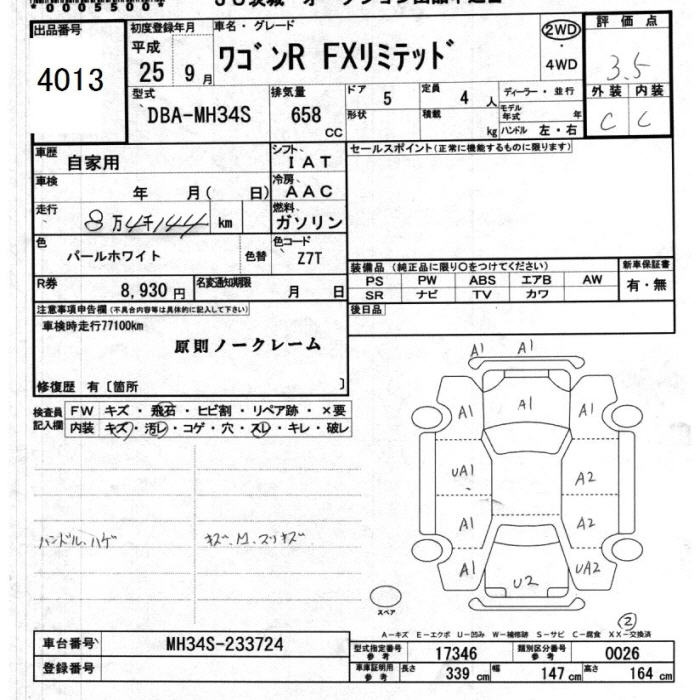 *00055004*
出品番号
4013
初度登録年月
平成
25 9月
車名・グレード
ワゴンR FXリミテッド
2WD
・
4WD
評価点
3.5
外装 内装
C C
型式
DBA-MH34S
排気量
658
CC
ドア
5
定員
4 人
形状
積載
kg
ディーラー・並行
モデル
年式 年
ハンドル 左・右
車歴
自家用
シフト、
IAT
車検
年 月( 日)
冷房、
AAC
走行
8万4千144 km
燃料
ガソリン
色
パールホワイト
色替
色コード
Z7T
R券
8,930 円
名変通知期限
月 日
セールスポイント(正常に機能するものに限ります)
装備品 (純正品に限り〇をつけてください)
PS PW ABS エアB AW
SR ナビ TV カワ
新車保証書
有・無
後日品
注意事項申告欄(不具合内容等は具体的に記入して下さい)
車検時走行77100km
原則ノークレーム
修復歴 有〔箇所 〕
検査員
記入欄
FW キズ・飛石・ヒビ割・リペア跡・×要
内装 キズ・汚レ・コゲ・穴・スレ・キレ・破レ
ハンドル、ハゲ
キズ、凹、スリキズ
A1 A1
A1 A1 A1
UA1 A2
A1 A2
A1 U2 UA2
スペア
2
A-キズ E-エクボ U-凹み W-補修跡 S-サビ C-腐食 XX-交換済
車台番号
MH34S-233724
登録番号
型式指定番号
参考
17346
類別区分番号
参考
0026
車庫証明用
参考
長さ
339 cm
幅
147 cm
高さ
164 cm